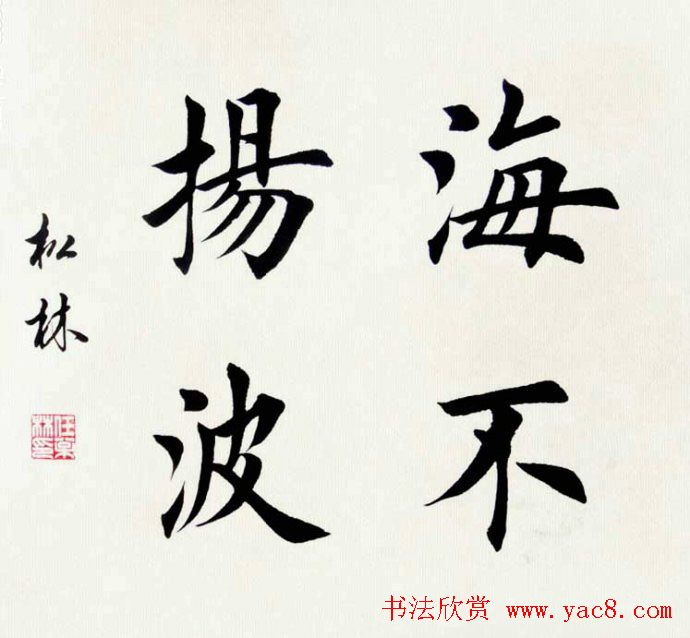 海不
揚波
松林
任枲林印
书法欣赏 www.yac8.com